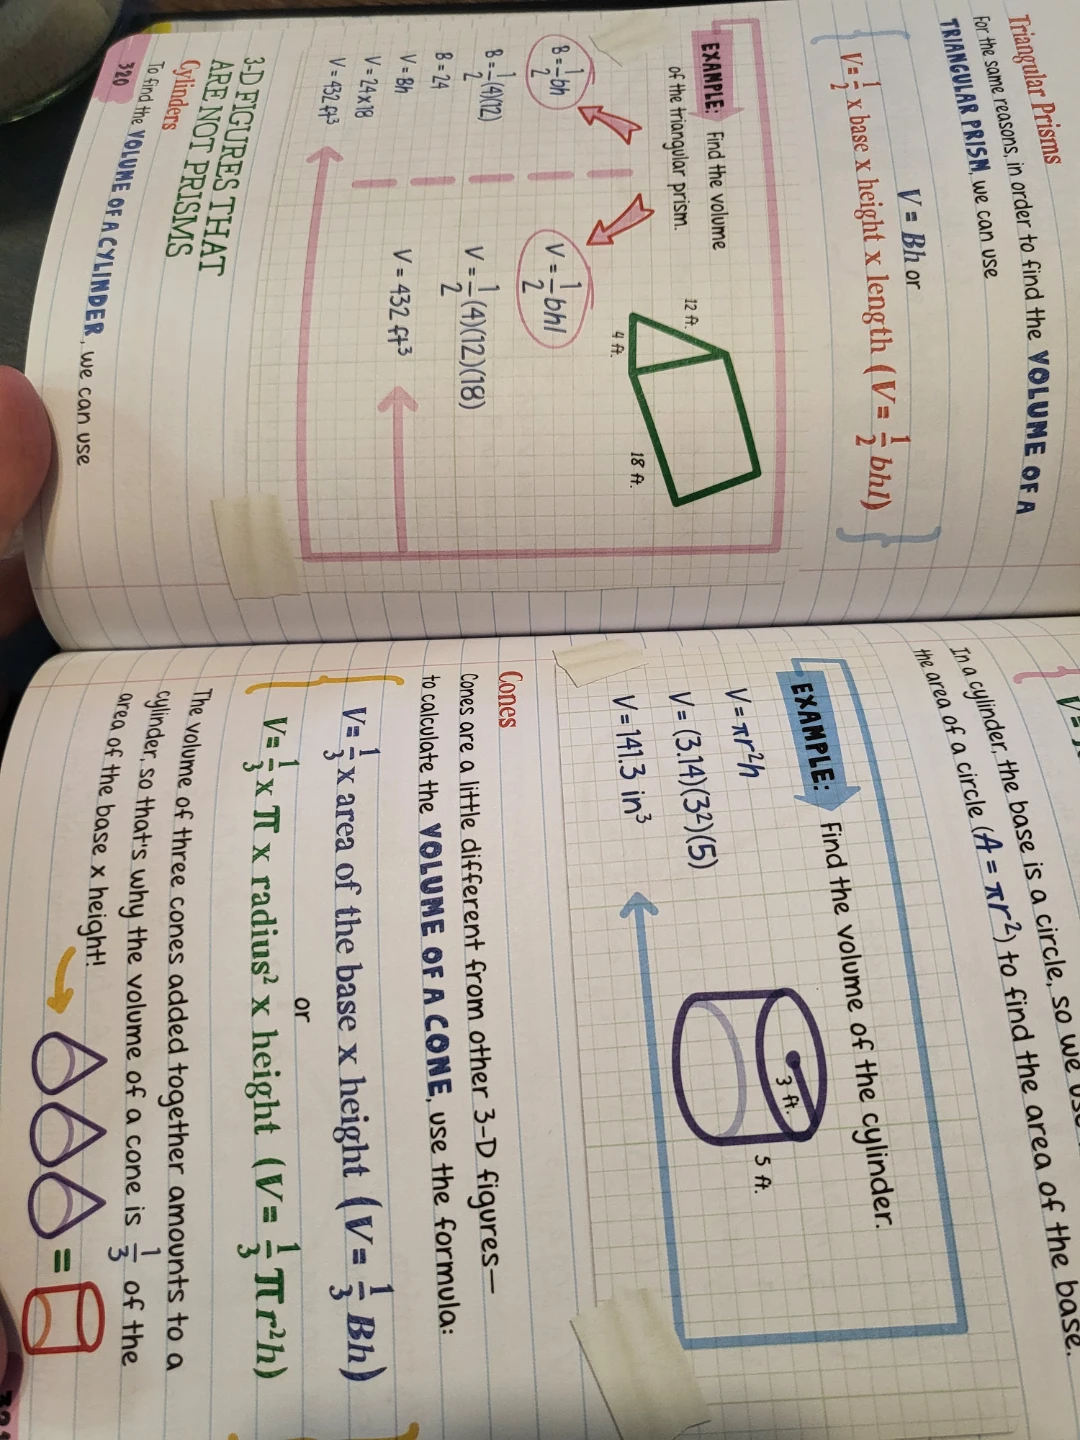 Triangular Prisms
For the same reasons, in order to find the VOLUME OF A
TRIANGULAR PRISM, we can use
V = Bh or
V = 1/2 x base x height x length (V = 1/2 bhl)
EXAMPLE: Find the volume
of the triangular prism.
12 ft.
4 ft.
18 ft.
B = 1/2 bh
B = 1/2 (4)(12)
B = 24
V = Bh
V = 24 x 18
V = 432 ft³
V = 1/2 bhl
V = 1/2 (4)(12)(18)
V = 432 ft³
3-D FIGURES THAT
ARE NOT PRISMS
Cylinders
To find the VOLUME OF A CYLINDER, we can use
320
In a cylinder, the base is a circle, so we use
the area of a circle (A = πr²) to find the area of the base.
EXAMPLE: Find the volume of the cylinder.
V = πr²h
V = (3.14)(3²)(5)
V = 141.3 in³
3 ft.
5 ft.
Cones
Cones are a little different from other 3-D figures—
to calculate the VOLUME OF A CONE, use the formula:
V = 1/3 x area of the base x height (V = 1/3 Bh)
or
V = 1/3 x π x radius² x height (V = 1/3 π r²h)
The volume of three cones added together amounts to a
cylinder, so that's why the volume of a cone is 1/3 of the
area of the base x height!
=